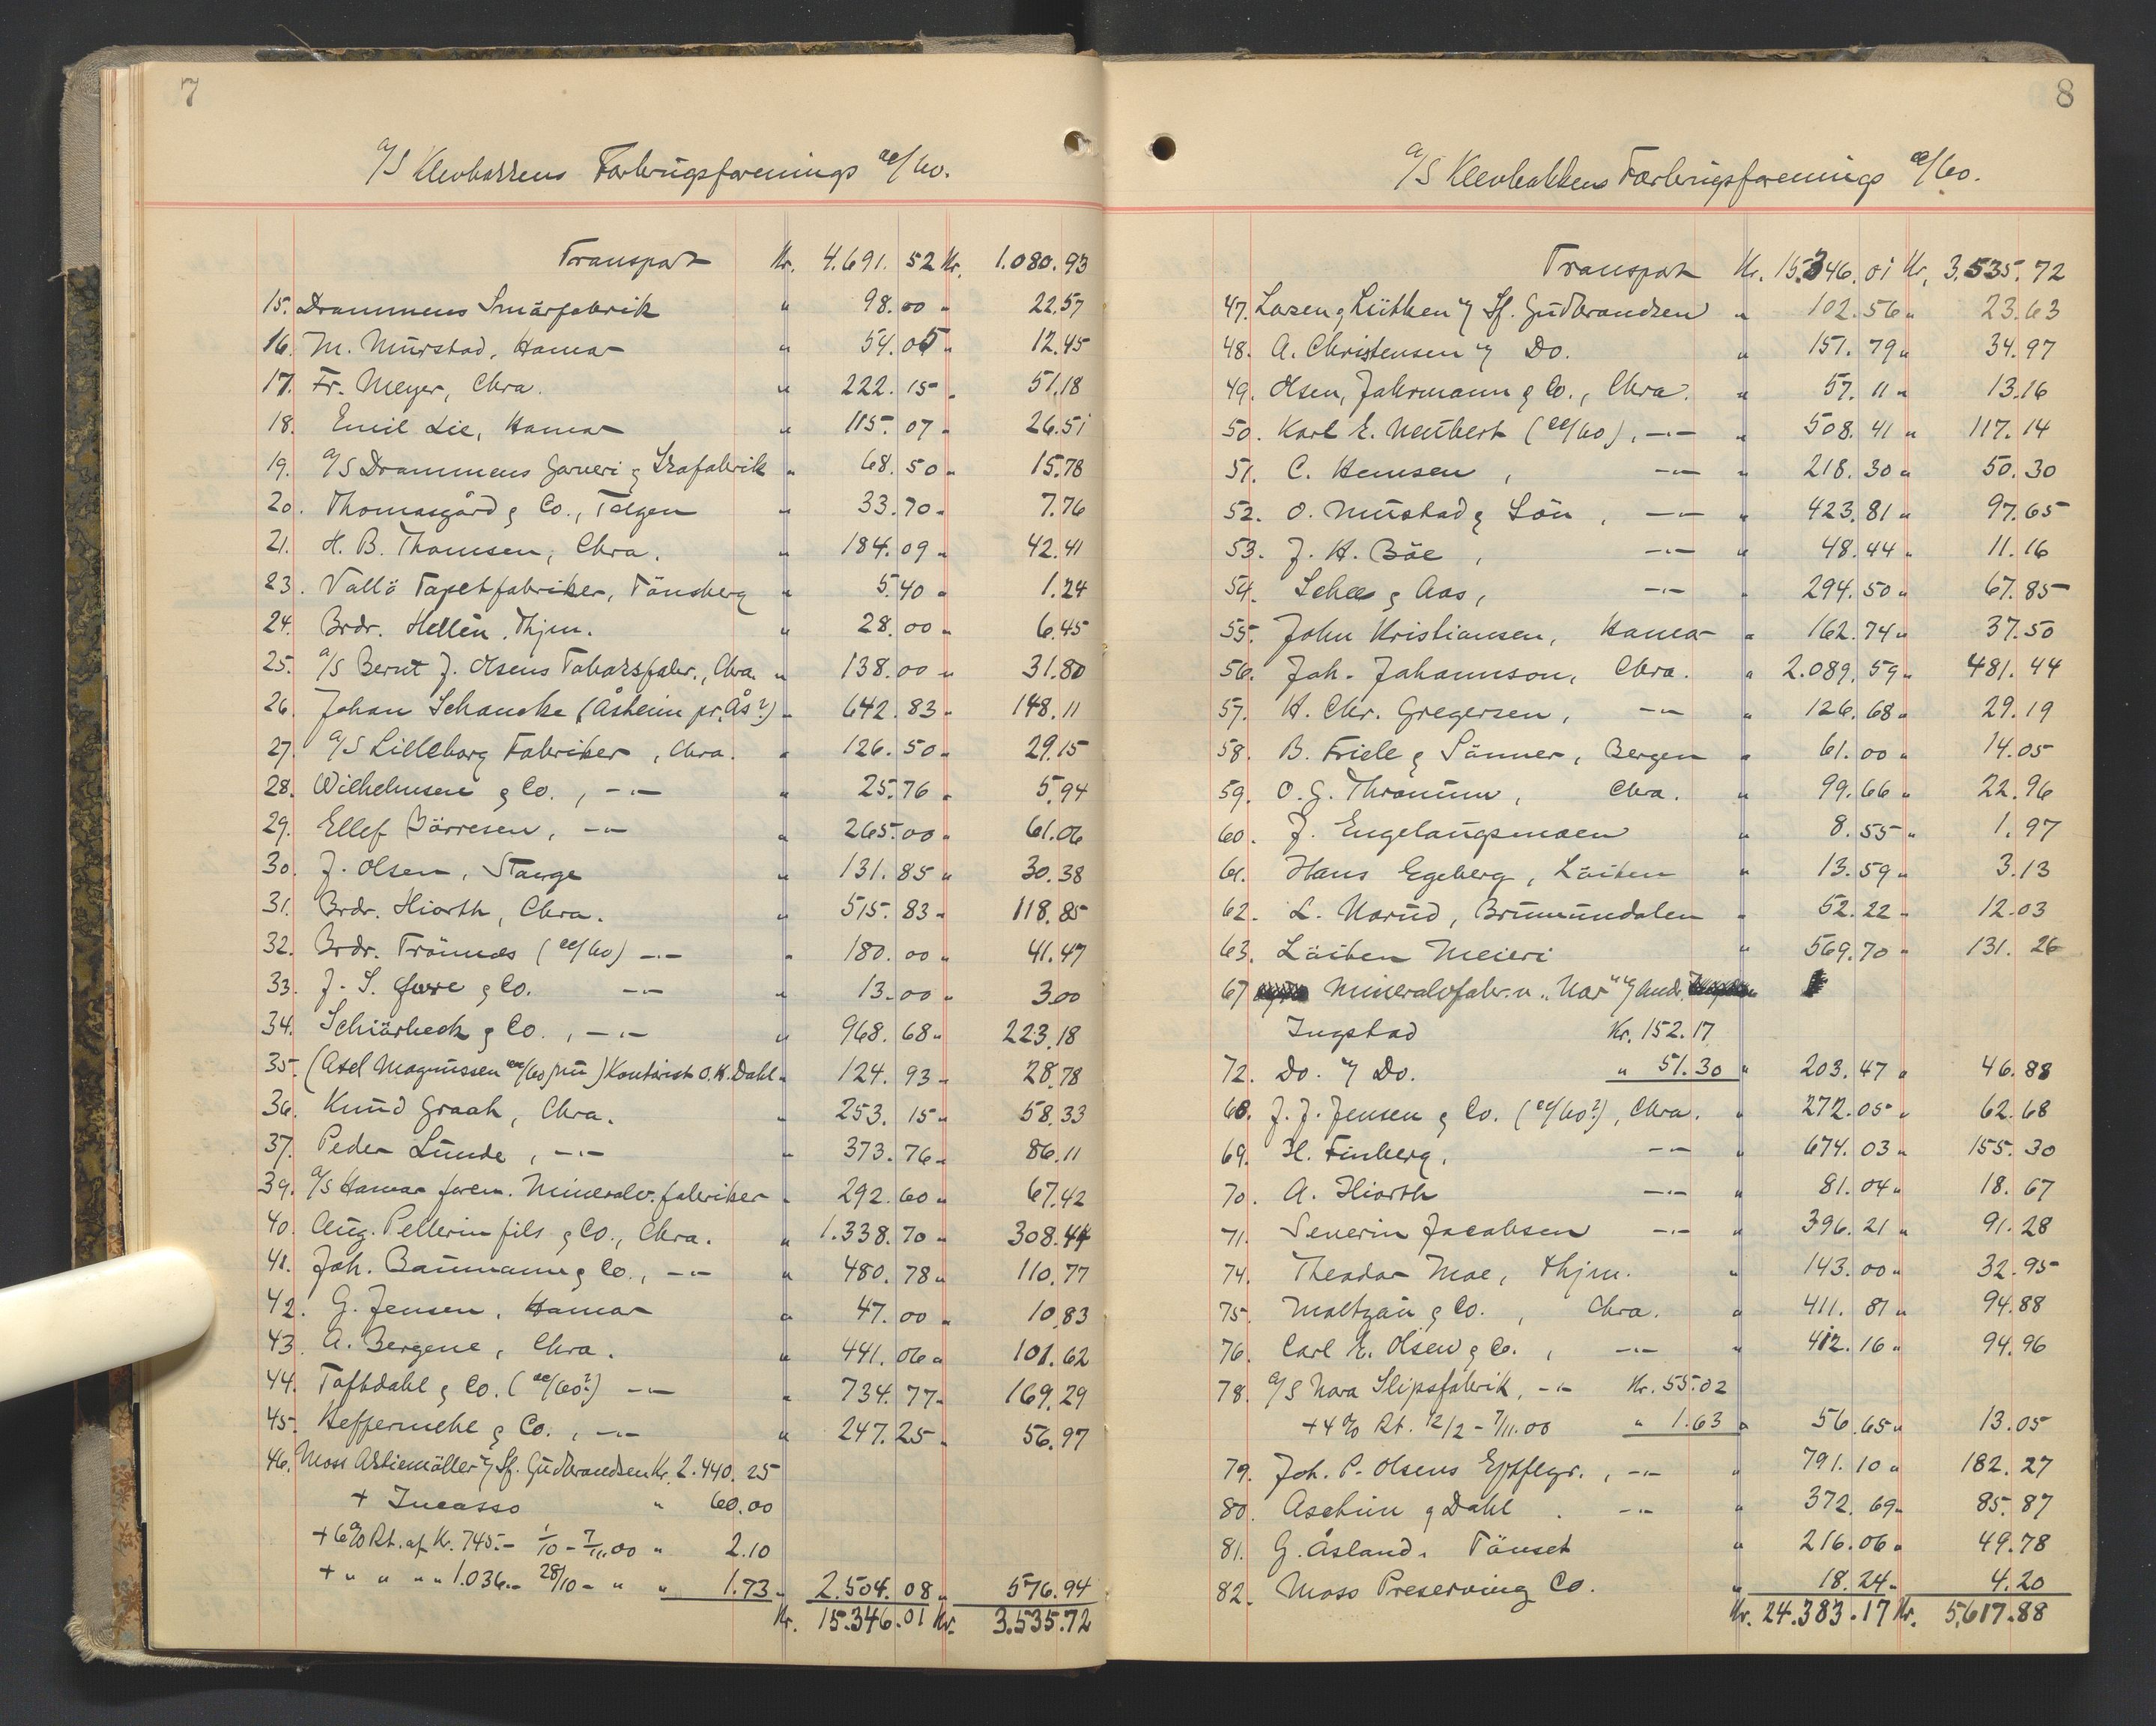 7
A/S Klevbakkens Forbrugsforenings ae/bo.
Transport Kr. 4.691.52 Kr. 1.080.93
15. Drammens Smörfabrik " 98.00 " 22.57
16. M. Mürstad, Hamar " 54.05 " 12.45
17. Fr. Meyer, Chra. " 222.15 " 51.18
18. Emil Lie, Hamar " 115.07 " 26.51
19. A/S Drammens Garveri & Skofabrik " 68.50 " 15.78
20. Thomasgård & Co., Telgen " 33.70 " 7.76
21. H. B. Thomsen, Chra. " 184.09 " 42.41
23. Vallö Tapetfabriker, Tönsberg " 5.40 " 1.24
24. Brdr. Hellen, Thjm. " 28.00 " 6.45
25. A/S Bernt J. Olsens Tobaksfabr., Chra. " 138.00 " 31.80
26. Johan Schancke (Åsheim pr. Ås?) " 642.83 " 148.11
27. A/S Lilleborg Fabriker, Chra. " 126.50 " 29.15
28. Wilhelmsen & Co., -"- " 25.76 " 5.94
29. Ellef Börresen, -"- " 265.00 " 61.06
30. J. Olsen, Stange " 131.85 " 30.38
31. Brdr. Hiorth, Chra. " 515.83 " 118.85
32. Brdr. Trönnes (ae/bo) -"- " 180.00 " 41.47
33. J. S. & Co. -"- " 13.00 " 3.00
34. Schiörbeck & Co., -"- " 968.68 " 223.18
35. (Axel Magnussen ae/bo nü) Kontorist O. K. Dahl " 124.93 " 28.78
36. Knud Graah, Chra. " 253.15 " 58.33
37. Peder Lunde, -"- " 373.76 " 86.11
39. A/S Hamar foren. Mineralv. fabriker " 292.60 " 67.42
40. Aug. Pellerin fils & Co., Chra. " 1.338.70 " 308.44
41. Joh. Baumann & Co., -"- " 480.78 " 110.77
42. G. Jensen, Hamar " 47.00 " 10.83
43. A. Bergene, Chra. " 441.06 " 101.62
44. Toftdahl & Co. (ae/bo?) -"- " 734.77 " 169.29
45. Heffermehl & Co., -"- " 247.25 " 56.97
46. Moss Aktiemöller v/ Sf. Gudbrandsen Kr. 2.440.25
+ Incasso " 60.00
+ 6% Rt. af Kr. 745.- 1/10 - 7/11.00 " 2.10
+ " " " " 1.036.- 28/10 - " " 1.73 " 2.504.08 " 576.94
Kr. 15.346.01 Kr. 3.535.72
8
A/S Klevbakkens Forbrugsforenings ae/bo.
Transport Kr. 15.346.01 Kr. 3.535.72
47. Lorsen & Lütken v/ Sf. Gudbrandsen " 102.56 " 23.63
48. A. Christensen v/ Do. " 151.79 " 34.97
49. Olsen, Fahrmann & Co., Chra. " 57.11 " 13.16
50. Karl E. Neubert (ae/bo), -"- " 508.41 " 117.14
51. C. Hemsen, -"- " 218.30 " 50.30
52. O. Mustad & Sön, -"- " 423.81 " 97.65
53. J. H. Böe, -"- " 48.44 " 11.16
54. Schee & Aas, -"- " 294.50 " 67.85
55. John Kristiansen, Hamar " 162.74 " 37.50
56. Joh. Johannson, Chra. " 2.089.59 " 481.44
57. H. Chr. Gregersen, -"- " 126.68 " 29.19
58. B. Friele & Sönner, Bergen " 61.00 " 14.05
59. O. G. Thranum, Chra. " 99.66 " 22.96
60. J. Engelaugsmoen " 8.55 " 1.97
61. Hans Egeberg, Löiten " 13.59 " 3.13
62. L. Narud, Brumunddalen " 52.22 " 12.03
63. Löiten Meieri " 569.70 " 131.26
67. Mineralvfabr. v. "Nor" v/ Andr.
Ingstad Kr. 152.17
72. Do. v/ Do. " 51.30 " 203.47 " 46.88
68. J. J. Jensen & Co. (ae/bo?), Chra. " 272.05 " 62.68
69. H. Finberg, -"- " 674.03 " 155.30
70. A. Hiorth -"- " 81.04 " 18.67
71. Severin Jacobsen -"- " 396.21 " 91.28
74. Theodor Moe, Thjm. " 143.00 " 32.95
75. Moltzau & Co., Chra. " 411.81 " 94.88
76. Carl E. Olsen & Co., -"- " 412.16 " 94.96
78. A/S Nora Slipsfabrik, -"- Kr. 55.02
+ 4% Rt. 12/2 - 7/11.00 " 1.63 " 56.65 " 13.05
79. Joh. P. Olsens Eftflgr., -"- " 791.10 " 182.27
80. Aschim & Dahl. -"- " 372.69 " 85.87
81. G. Åsland, Tönset " 216.06 " 49.78
82. Moss Preserving Co. " 18.24 " 4.20
Kr. 24.383.17 Kr. 5.617.88